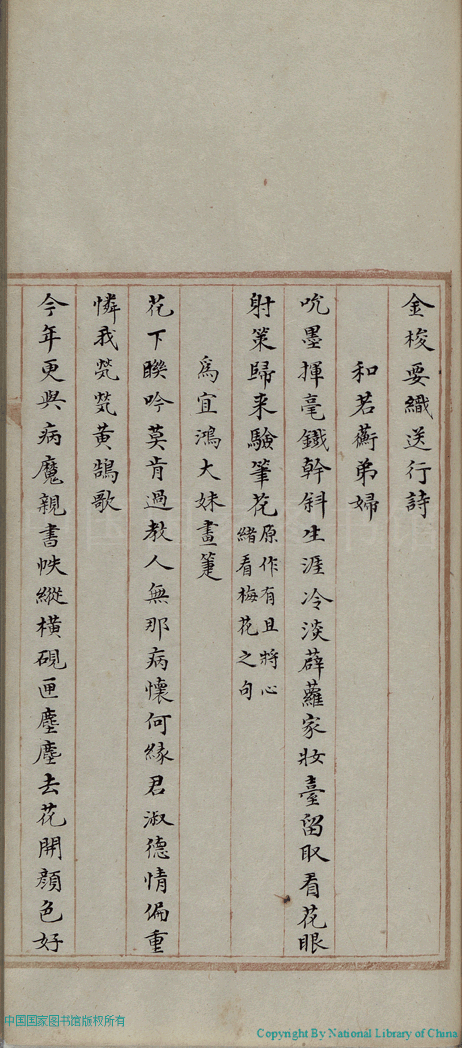 金梭要織送行詩
和若蘅弟婦
吮墨揮毫鐵幹斜生涯冷淡薜蘿家妝臺留取看花眼
射策歸来驗筆花原作有且將心緒看梅花之句
為宜鴻大妹畫箑
花下睽吟莫肯過教人無那病懷何緣君淑德情偏重
憐我煢煢黃鵠歌
今年更與病魔親書帙縱橫硯匣塵塵去花開顏色好
中国国家图书馆版权所有
Copyright By National Library of China